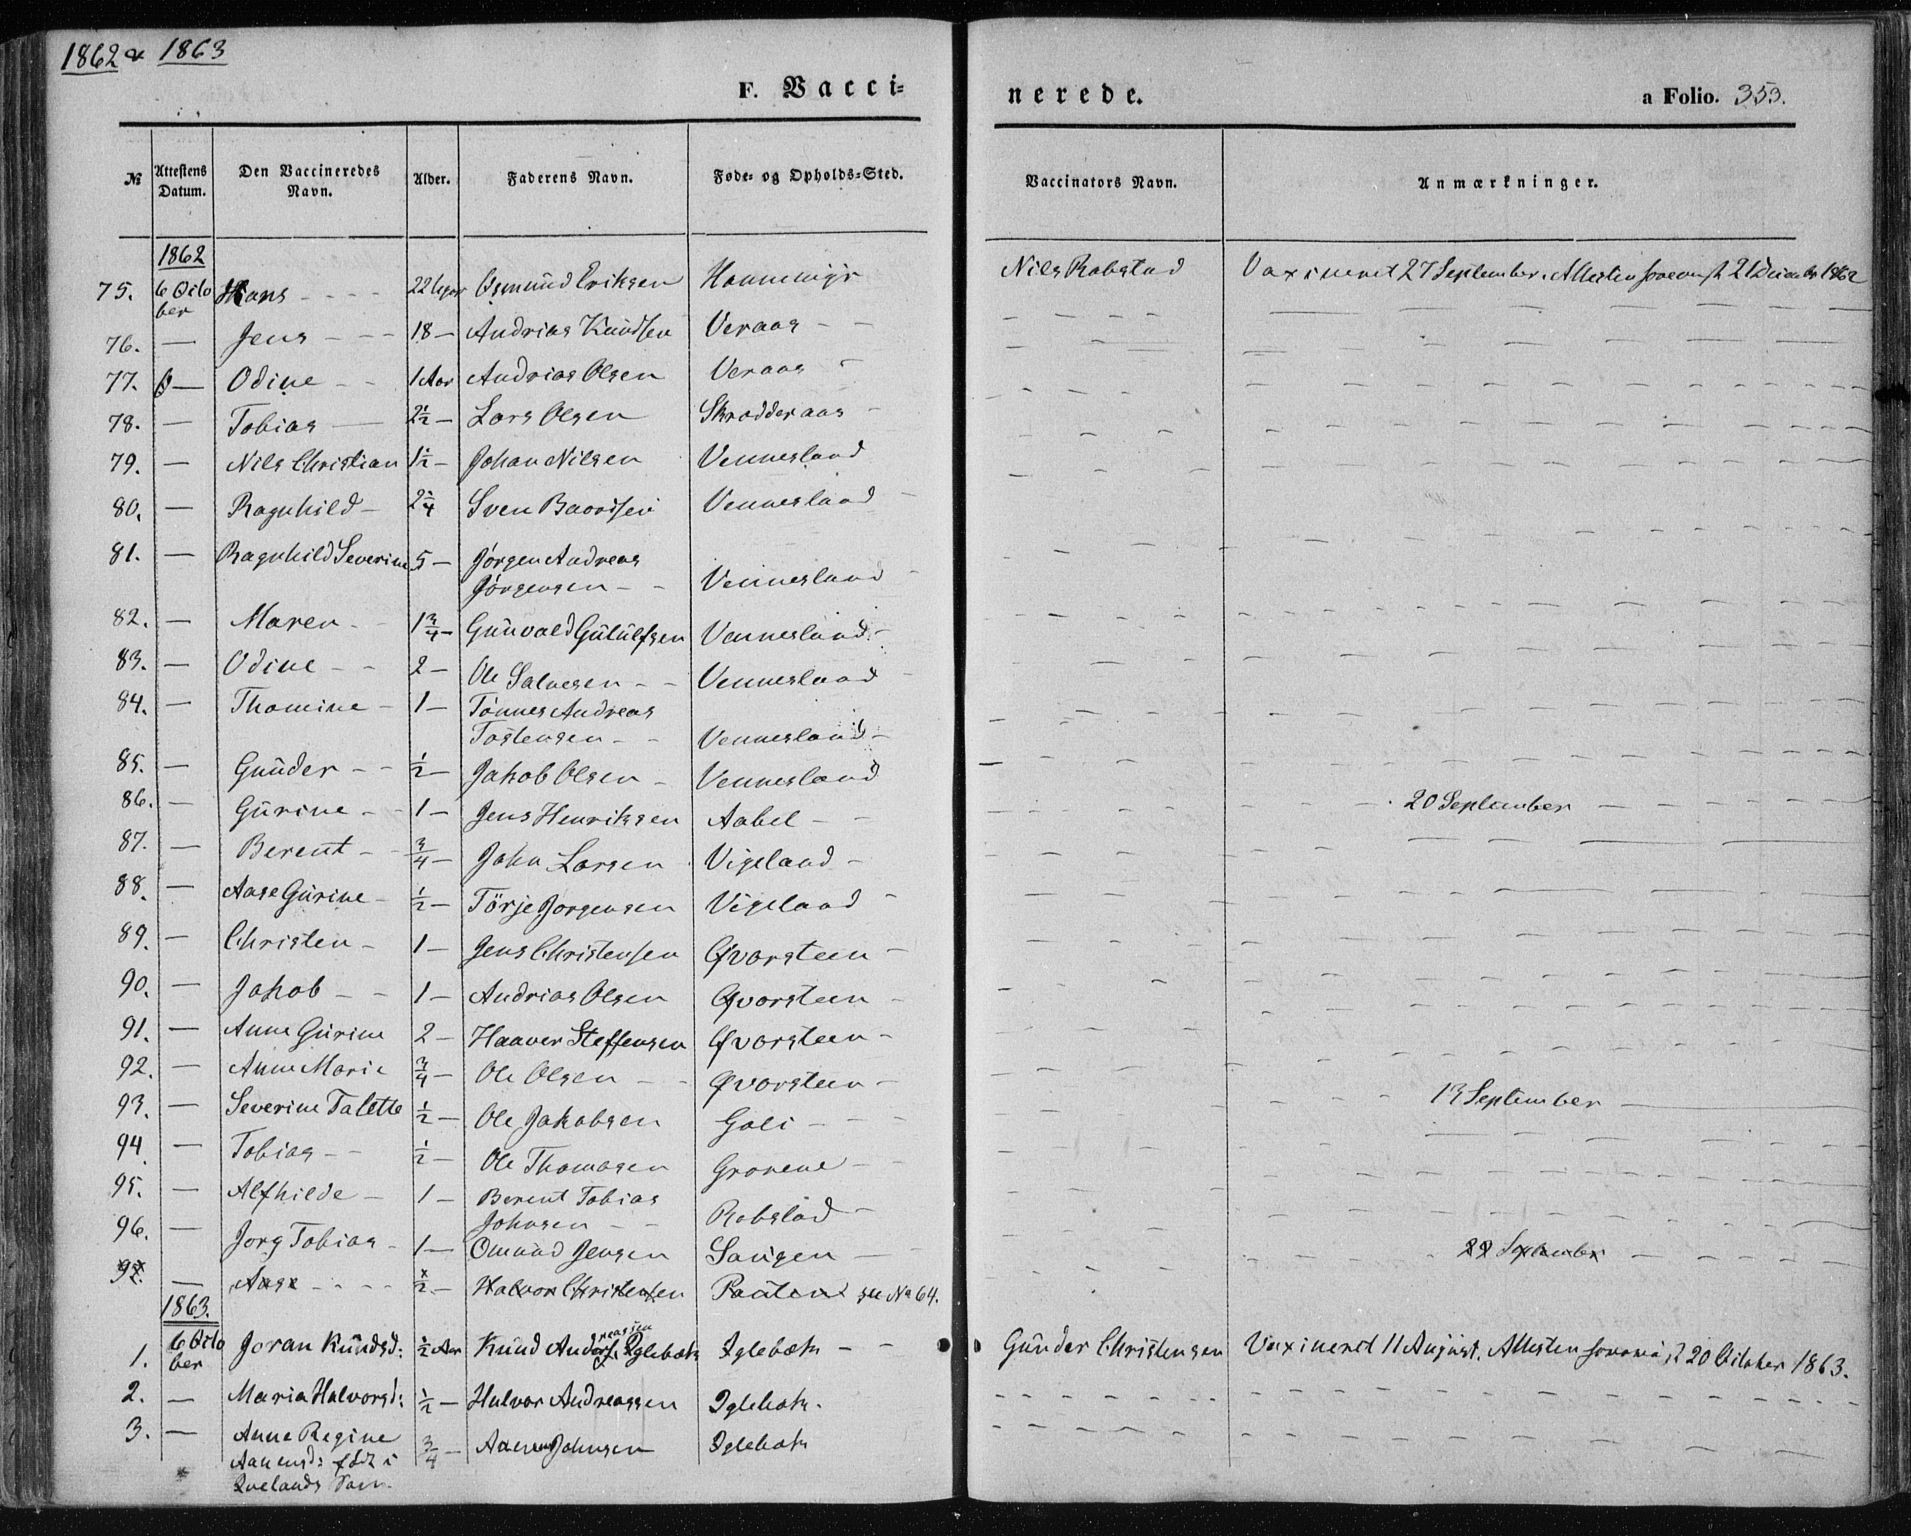 1862 & 1863
F. Vacci=
nerede.
a Folio. 353.
№ Attestens Datum. Den Vaccineredes Navn. Alder. Faderens Navn. Føde- og Opholds-Sted. Vaccinators Navn. Anmærkninger.
1862
75. 6 October Hans - - - - 22 Uger Osmund Eriksen Hommemyr Nils Robstad Vaxineret 27 September. Attesten 21 December 1862
76. — Jens - - - 18 — Andrias Knudsen Veraas - -
77. — Odine - - 1 Aar Andrias Olsen Veraas -
78. — Tobias — 2½ — Lars Olsen Skrodderaas -
79. — Nils Christian 1½ — Johan Nilsen Vennesland
80. — Ragnhild - 2¼ Sven Baardsen Vennesland -
81. — Ragnhild Severine 5 — Jørgen Andreas
Jørgensen - - Vennesland -
82. — Maren - - 1¾ — Gunvald Gulülfsen Vennesland -
83. — Odine - - 2 — Ole Salvesen - - Vennesland -
84. — Thomine - 1 — Tønnes Andreas
Tostensen - - Vennesland -
85. — Gunder - - ½ — Jakob Olsen - Vennesland
86. — Gurine - - 1 — Jens Henriksen Aabel - - 20 September
87. — Berent - - ¾ — John Larsen Vigeland -
88. — Aase Gurine - ½ — Törje Jorgensen Vigeland -
89. — Christen - 1 — Jens Christensen Qvarsteen -
90. — Jakob - - 1 — Andrias Olsen Qvarsteen -
91. — Anne Gurine 2 — Haaver Steffensen Qvarsteen -
92. — Anne Marie ¾ — Ole Olsen - - Qvarsteen -
93. — Severine Talette ½ — Ole Jakobsen Goli - - - 13 September
94. — Tobias - - ½ — Ole Thomasen Grovene - -
95. — Alfhilde - 1 — Berent Tobias
Johnsen - - Robstad -
96. — Jorg Tobias - 1 — Omund Jensen Saugen — 22 September
97. — Aase - - - - ½ — Halvor Christensen Paulen se No 64.
1863.
1. 6 October Joran Knudsd: ½ Aar Knud Andreassen Iglebæk Iglebæk - - Gunder Christensen Vaxineret 11 August. Attesten 20 October 1863.
2. — Maria Halvorsd: ½ — Halvor Andreassen Iglebæk.
3. — Anne Regine ¾ — Aanen Johnsen Iglebæk
Aanensd: født i